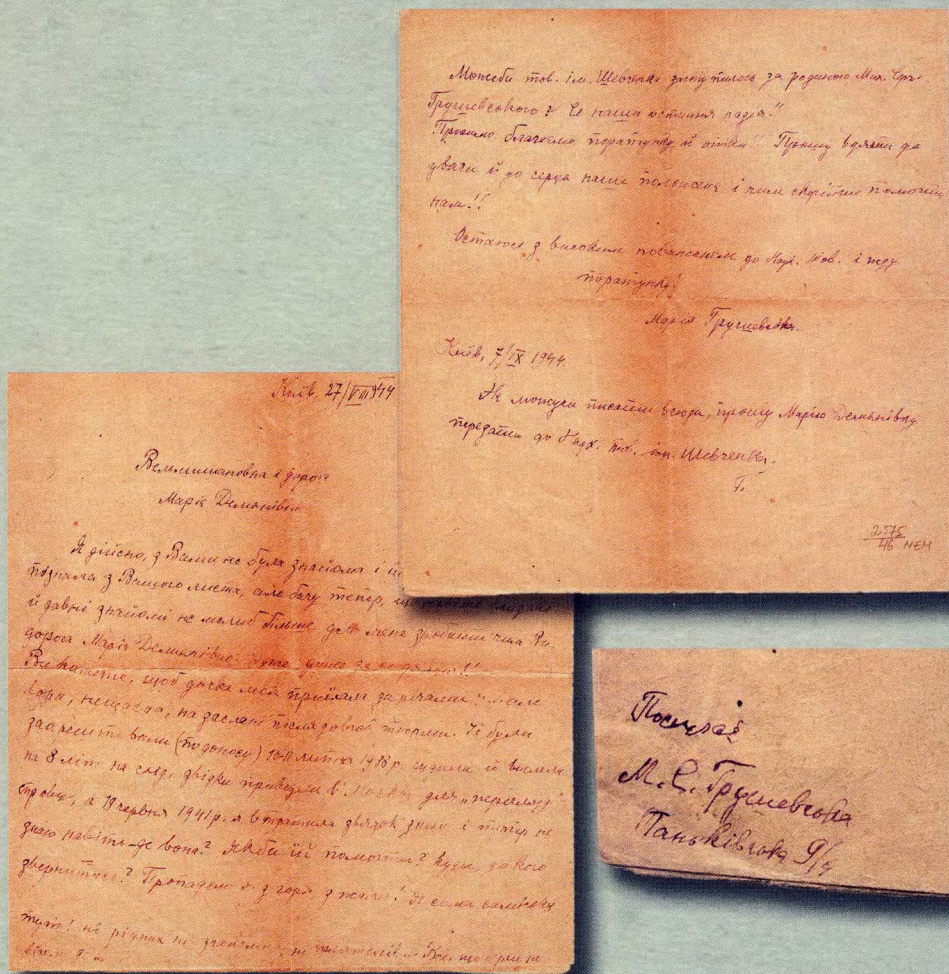 Можеби тов. ім. Шевченка заступилось за родиною Мих. Сер.
Грушевського? Це наша остання надія!!
Просимо благаємо порятунку й опіки! Прошу взяти до
уваги й до серця наше положення і чим скоріше помогти
нам!!
Остаюся з високим поважанням до Наук. Тов. і жду
порятунку!
Марія Грушевська.
Київ, 7/IX 1944.
Як можуть писати всюди, прошу Марію Демянівну
передати до Наук. тов. ім. Шевченка.
Г.
2575
46 НЕМ
Київ, 27/VIII 1944
Вельмишановна і дорога
Марія Демянівна
Я дійсно, з Вами не була знайома і
пізнала з Вашого листа, але бачу тепер, що
й давні знайомі не могли більше для мене зробити чим Ви,
дорога Марія Демянівно.
Ви кажете, щоб дочка моя приїхала за речами
вона, нещасна, на засланні після довгої тюрми. Її були
заарештовали (по доносу) 10-11 лютня 1938р. судили й вислали
на 8 літ на схід, звідки привезли в Москву для "перегляду
справи, а 19 червня 1941р. я втратила звязок з нею і тепер не
знаю навіть - де вона? Як би їй помогти? Куди, до кого
звернутися? Пропадаю я з горя, з жалю! Я сама самінока
тут! ні рідних ні знайомих, ні приятелів.. Всі, що були не
Посилає
М.С. Грушевська
Паньківська 9/4